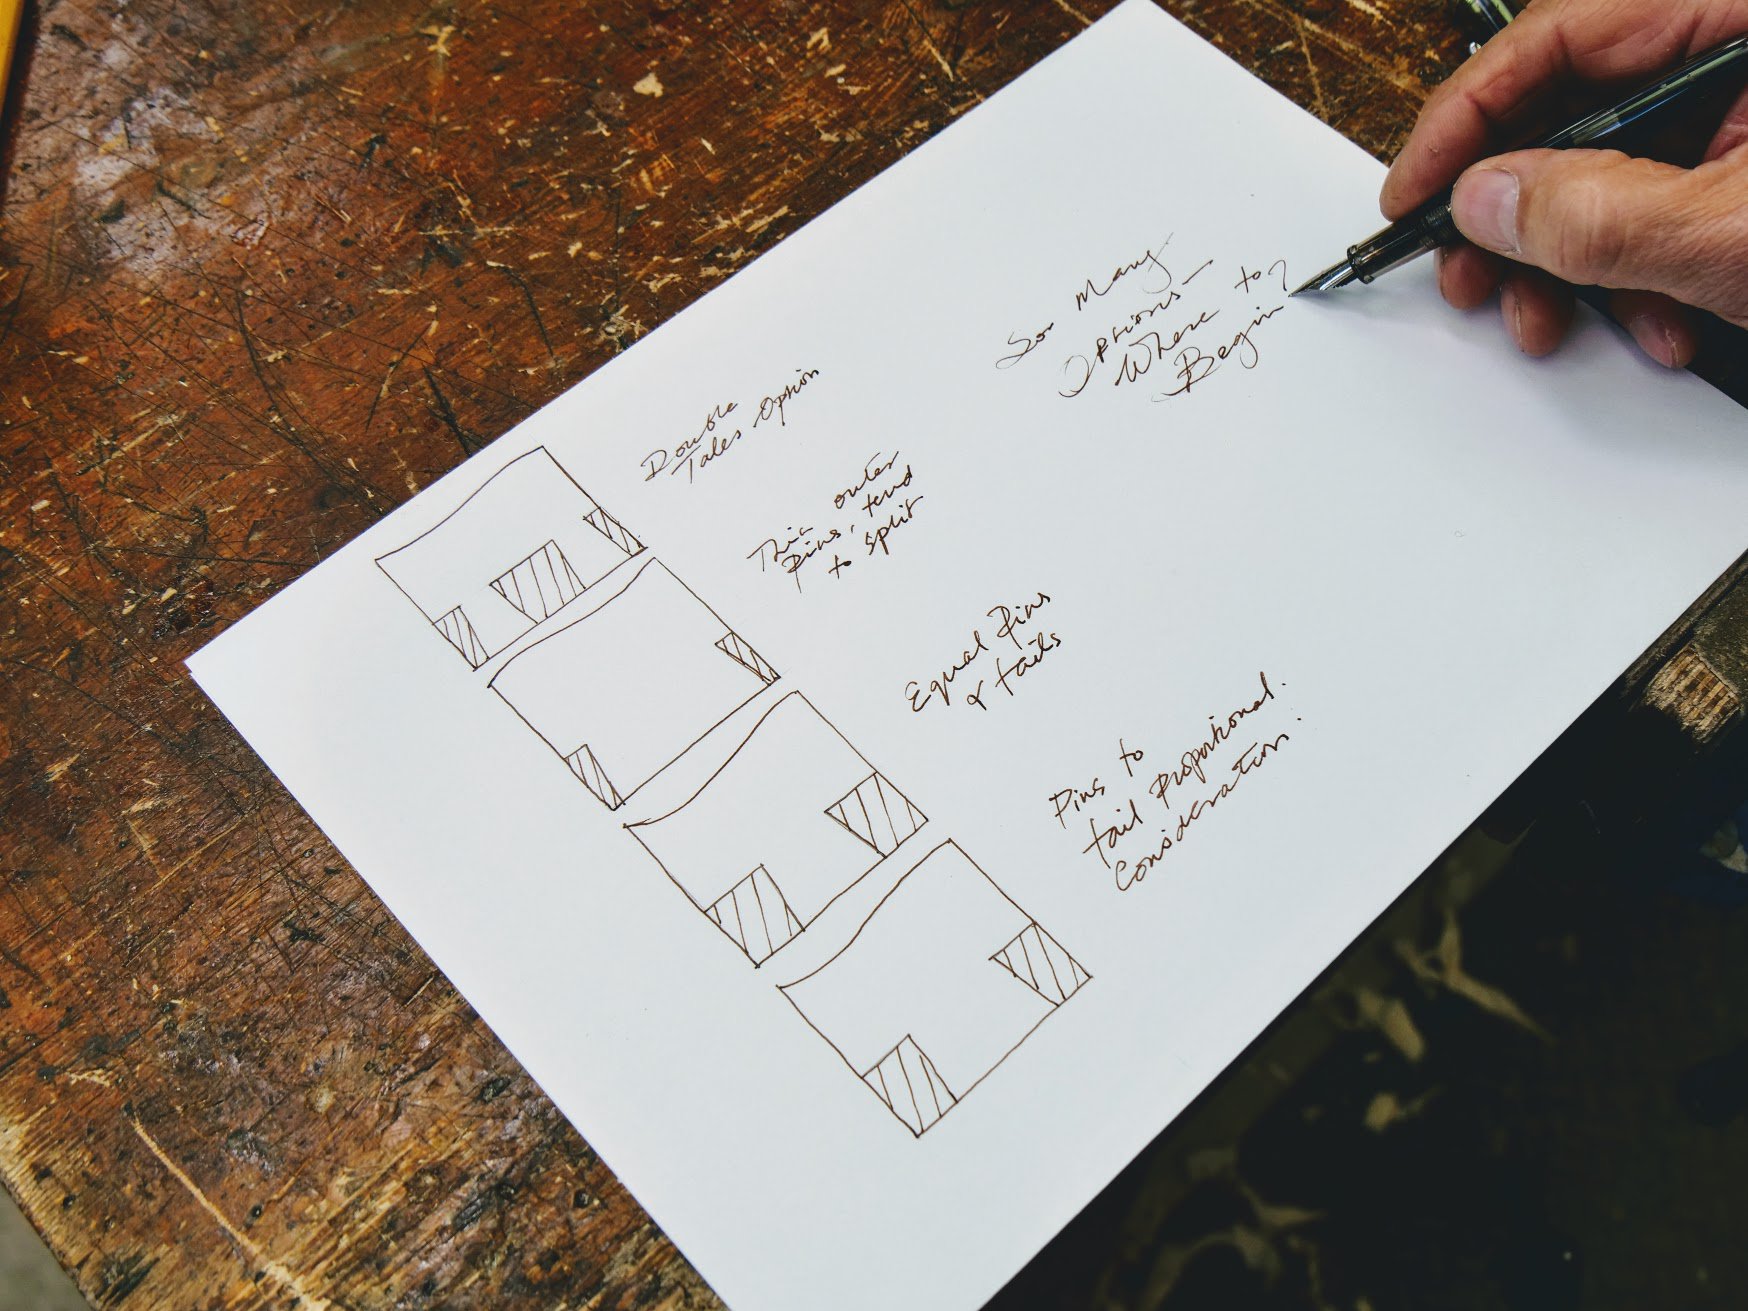 Double
Tales Option
Thin outer
Pins, tend
to split
Equal Pins
& tails
Pins to
tail Proportional.
Consideration.
Soo Many
Options—
Where to
Begin?